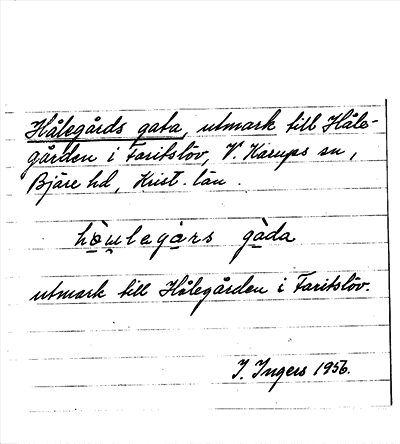 Hålegårds gata, utmark till Håle-
gården i Faritslöv, V. Karups sn,
Bjäre hd, Krist. län.
hòu̯legàrs gàda
utmark till Hålegården i Faritslöv.
I. Ingers 1956.